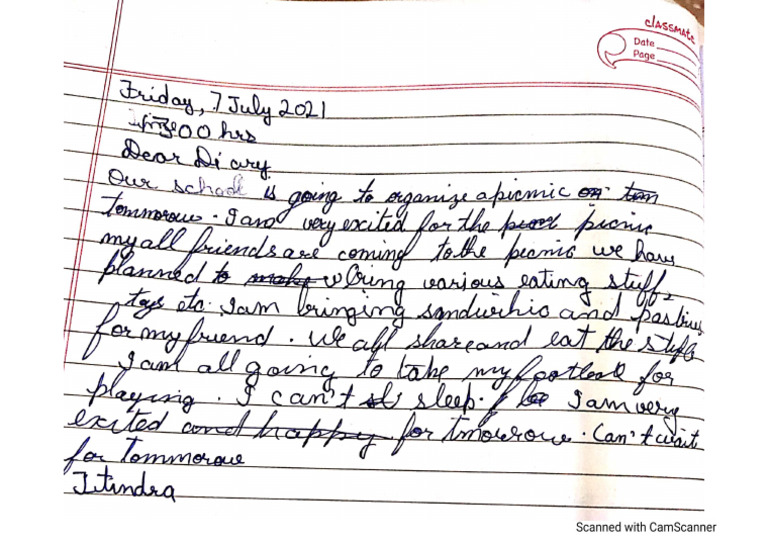 classmate
Date
Page
Friday, 7 July 2021
00 hrs
Dear Diary
Our school is going to organize a picmic on tom
tommorow. I am very excited for the picnic
my all friends are coming to the picnic we have
planned to make bring various eating stuff,
toys etc. I am bringing sandwhic and pastries
for my friend. We all share and eat the stuff
I am all going to take my football for
playing. I can't sl sleep. I am very
exited and happy for tmorrow. Can't wait
for tommorow
Jitindra
Scanned with CamScanner